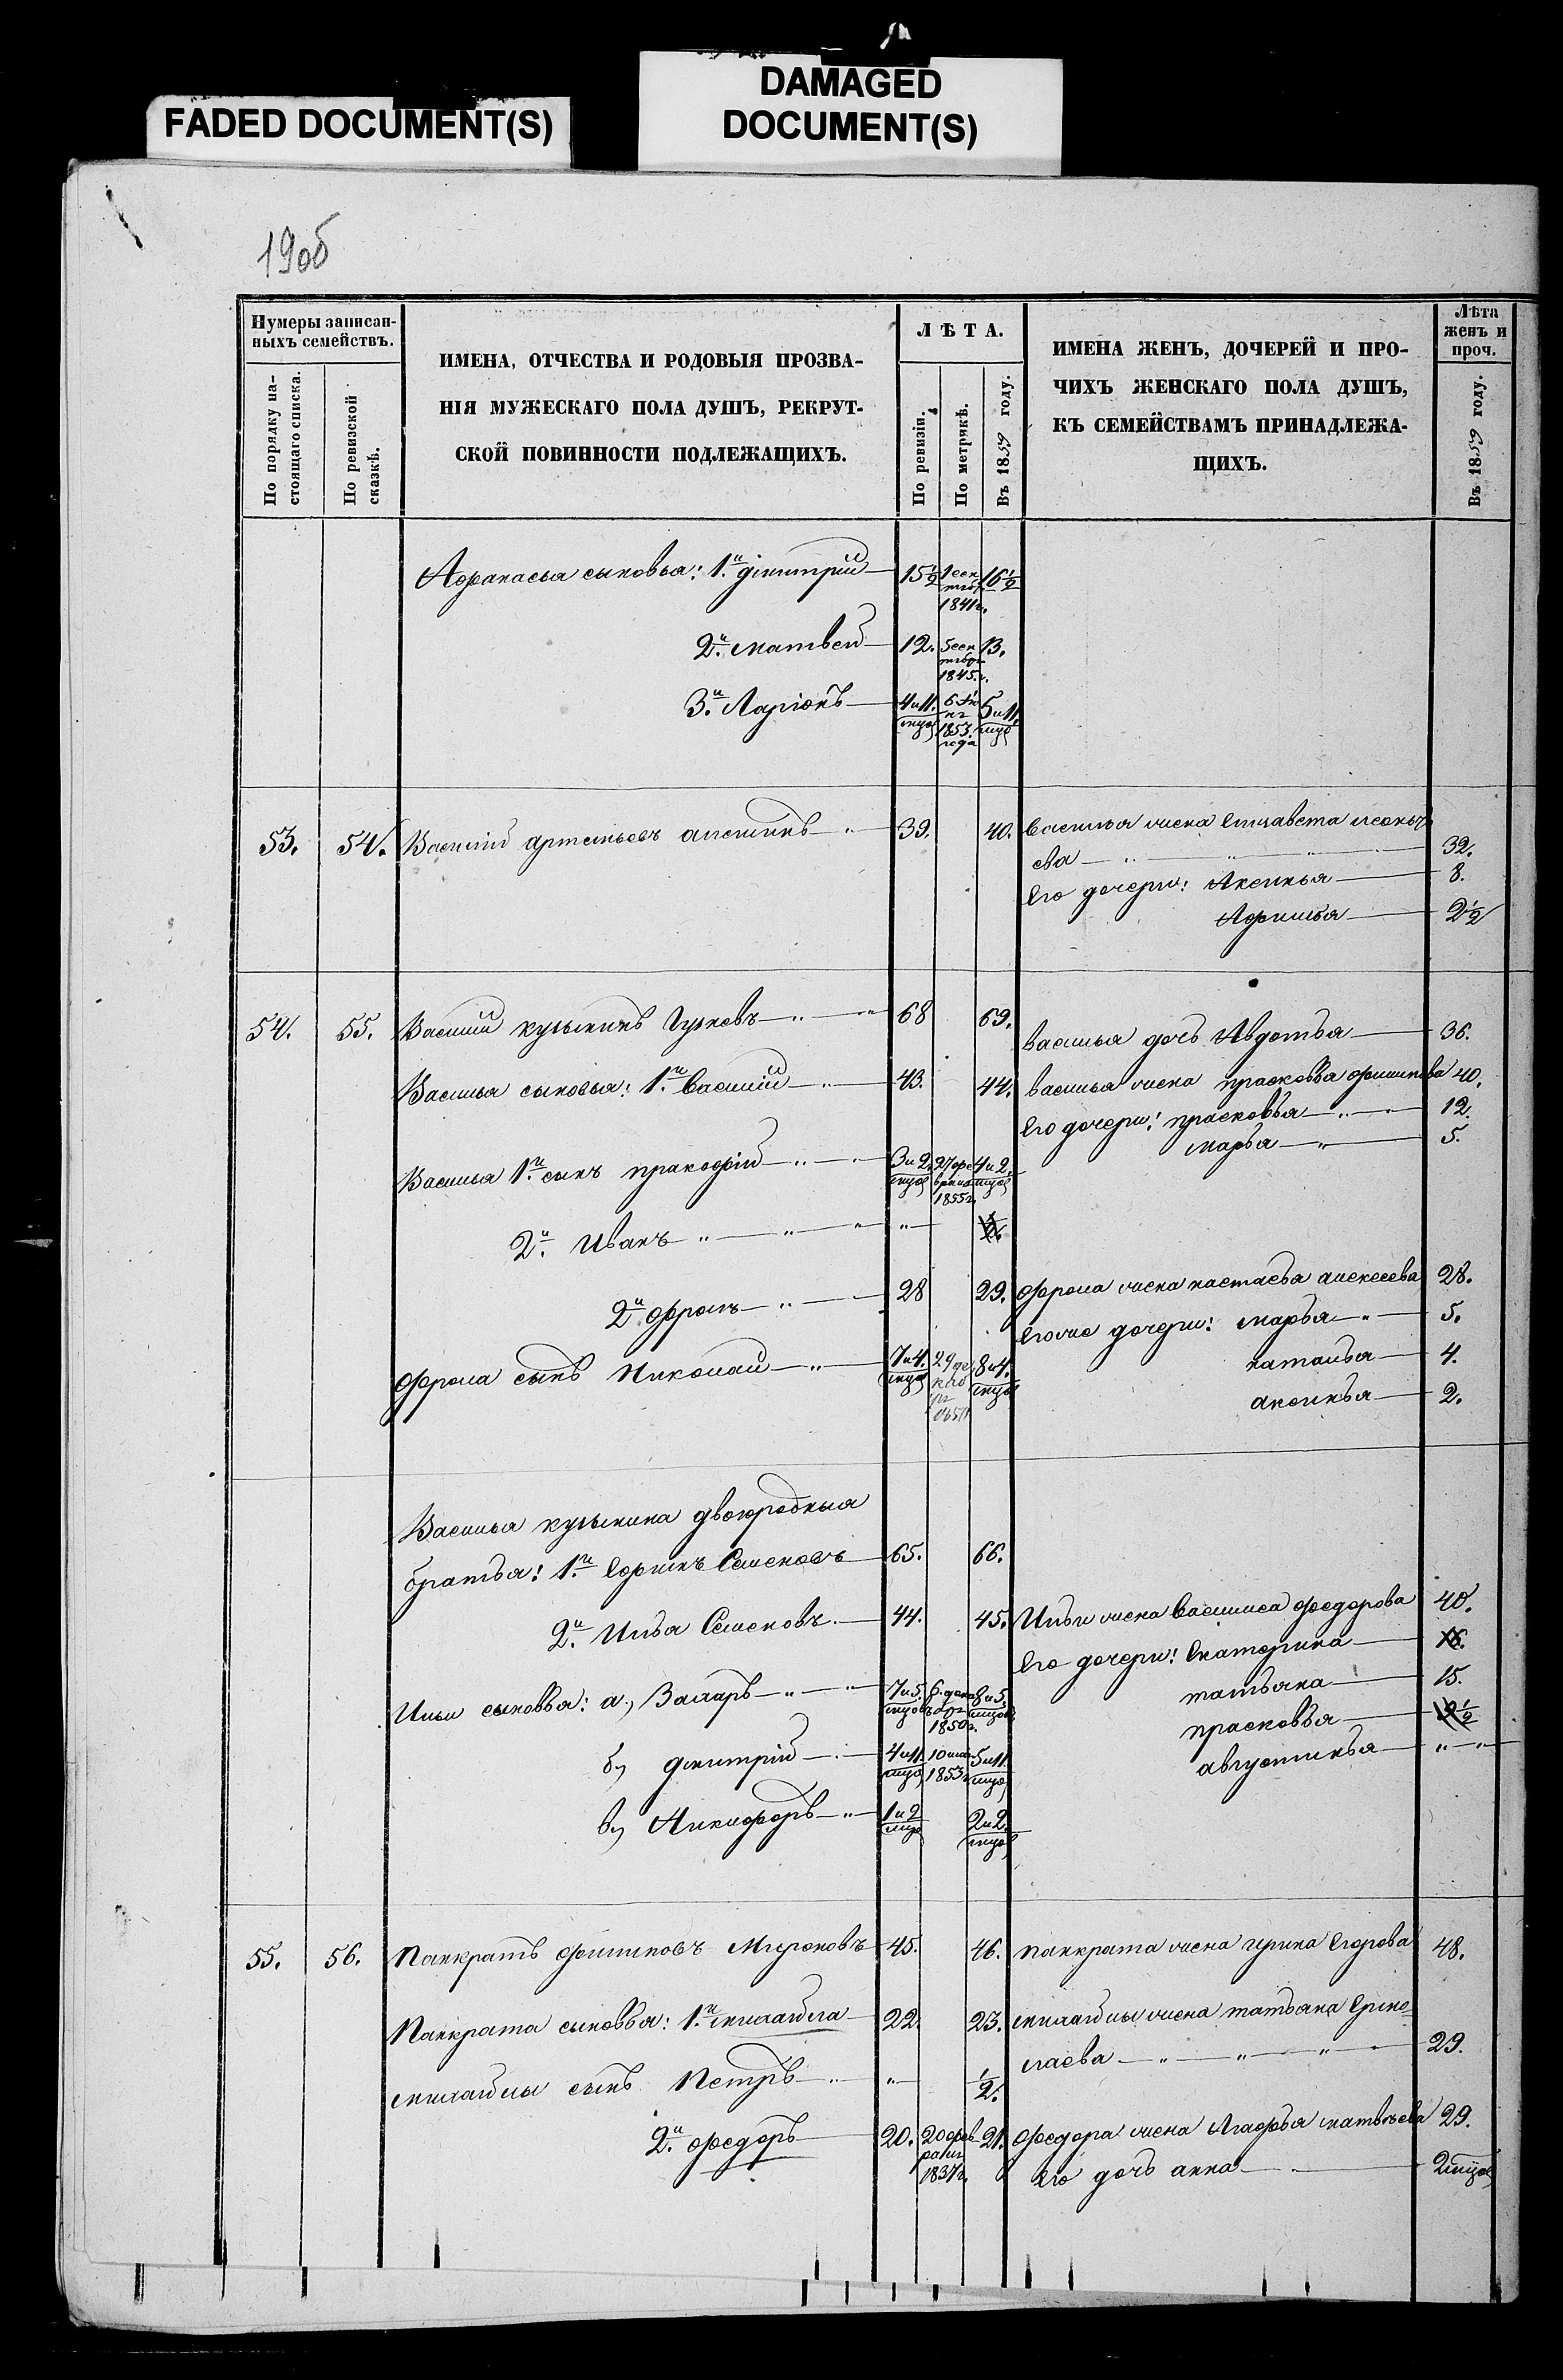 FADED DOCUMENT(S)
DAMAGED
DOCUMENT(S)
190б
Нумеры записан-
ныхъ семействъ.
По порядку на-
стоящаго списка.
По ревизской
сказкѣ.
ИМЕНА, ОТЧЕСТВА И РОДОВЫЯ ПРОЗВА-
НІЯ МУЖЕСКАГО ПОЛА ДУШЪ, РЕКРУТ-
СКОЙ ПОВИННОСТИ ПОДЛЕЖАЩИХЪ.
ЛѢТА.
По ревизіи.
По метрикѣ.
Въ 1859 году.
ИМЕНА ЖЕНЪ, ДОЧЕРЕЙ И ПРО-
ЧИХЪ ЖЕНСКАГО ПОЛА ДУШЪ,
КЪ СЕМЕЙСТВАМЪ ПРИНАДЛЕЖА-
ЩИХЪ.
Лѣта
женъ и
проч.
Въ 1859 году.
Афанасья сыновья: 1й Дмитрій 15½ 1 сен
тяб 1841г. 16½
2й Матвей 12. 5 сен
тября 1845г. 13.
3й Ларіонъ 4 и 11. мцов 1853 года 5 и 11 мцов
53. 54. Василій Артемьевъ 39. 40. Василья жена Елизавета Леонть
ева 32.
Его дочери: Аксинья 8.
Афимья 2½
54. 55. Василій Кузьминъ Гуськовъ 68 69.
Василья дочь Авдотья 36.
Василья сыновья: 1й Василій 43. 44. Василья жена Прасковья Филипова 40.
Его дочери: Прасковья 12.
Марья 5.
Василья 1й сынъ Пракофій 3 и 2 мцов 27 фе
враля 1855г. 4 и 2. мцов
2й Иванъ " ½
2й Фролъ 28 29. Фрола жена Настасья Алексеева 28.
Его же дочери: Марья 5.
Фрола сынъ Николай 7 и 4. мцов 29 де
каб
ря 8 и 4. мцов Наталья 4.
Аксинья 2.
Василья Кузьмина двоюродныя
братья: 1й Ефимъ Семеновъ 65. 66.
2й Илья Семеновъ 44. 45. Ильи жена Василиса Федорова 40.
Его дочери: Екатерина 18.
Татьяна 15.
Ильи сыновья: а, Захаръ 7 и 5. мцовъ 6 декаб
ря 1850г. 8 и 5. мцов
Прасковья 9½
б, Дмитрій 4 и 11. мцов 1853г 5 и 11 мцов Августинья "
в, Никифоръ 1 и 2 мцов 2 и 2. мцов
55. 56. Панкратъ Филиповъ Мироновъ 45. 46. Панкрата жена Ирина Егорова 48.
Панкрата сыновья: 1й Михайла 22. 23. Михайлы жена Татьяна Ермо
лаева 29.
Михайлы сынъ Петръ " ½.
2й Федоръ 20. 20 фев
раля 1837г. 21. Федора жена Агафья Матвѣева 29.
Его дочь Анна 2 мцов